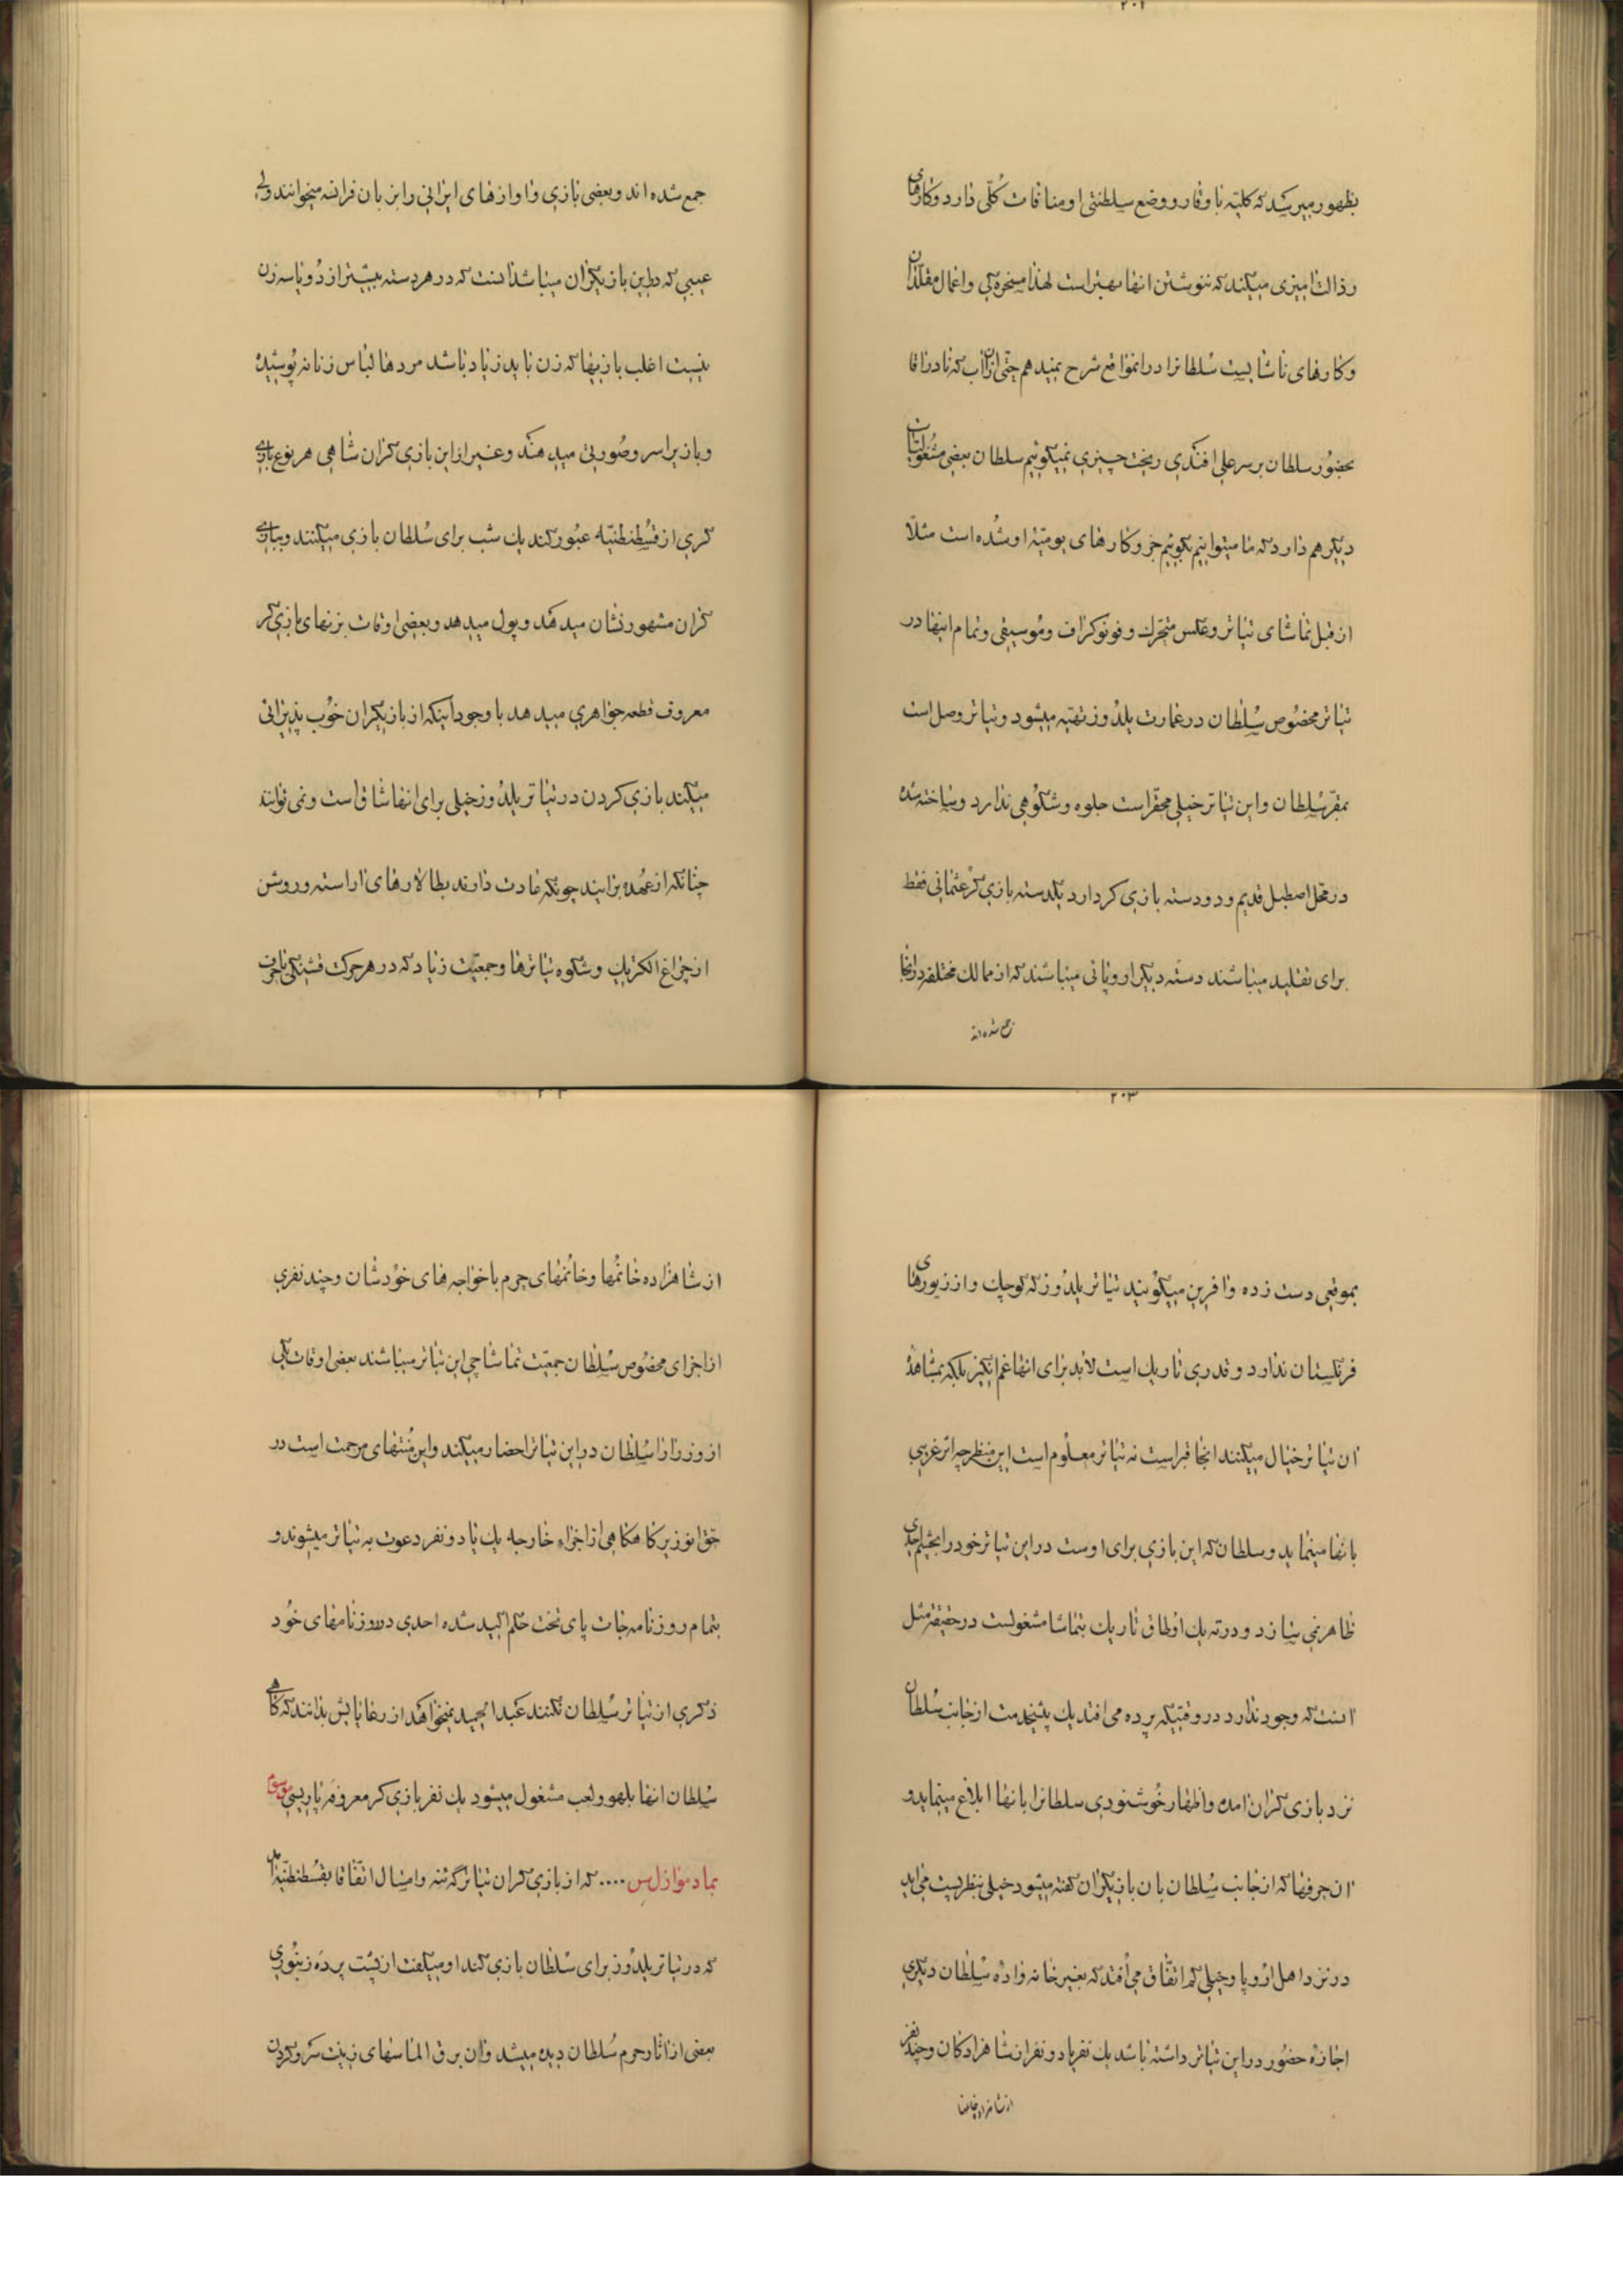 ۲۰۱
بظهور میرسد که کلیّه با وقار و وضع سلطنتی او منافات کُلّی دارد و کارهای
رذالت امیزی میکند که ننوشتن انها بهتر است لهذا مسخره گی و اعمال مقلّدان
و کارهای ناشایست سُلطانرا در انمواقع شرح نمیدهم حتّی ازان اب که نادراقا
بحضُور سلطان بر سر علی افندی ریخت چیزی نمیگوئیم سلطان بعضی مشغولیّات
دیگر هم دارد که ما میتوانیم بگوئیم جزو کارهای یومیّه او شُده است مثلاً
از قبل تماشای تیاتر و عکس متحرّك و فونوکراف و مُوسیقی و تمام اینها در
تیاتر مخصُوص سُلطان در عمارت یلدُوز تهیّه میشود و تیاتر وصل است
بمقرّ سُلطان و این تیاتر خیلی محقّر است جلوه و شکوُهی ندارد و ساخته شده
در محل اصطبل قدیم و دو دسته بازی کر دارد یکدسته بازی کر عثمانی فقط
برای تقلید میباشند دستَه دیگر اروپائی میباشند که از ممالك مختلفه در انجا
جمع شده اند
جمع شده اند و بعضی بازی و اوازهای ایرانی را بزبان فرانسه میخوانند ولی
عیبی که در این بازیگران میباشد انست که در هر دسته بیشتر از دُو یا سه زن
نیست اغلب بازیها که زن باید زیاد باشد مردها لباس زنانه پُوشیده
و بازیرا سر و صُورتی میدهند و غیر از این بازی کران شاهی هر نوع بازی
کری از قسُطنطنیّه عبُور کند یك شب برای سُلطان بازی میکنند و ببازی
کران مشهور نشان میدهد و پول میدهد و بعضی اوقات بزنهای بازی کر
معروف قطعه جواهری میدهد با وجود اینکه از بازیگران خُوب پذیرائی
میکند بازی کردن در تیاتر یلدُوز خیلی برای انها شاق است و نمی توانند
چنانکه از عُهده برایند چونکه عادت دارند بطالارهای اراسته و روشن
از چراغ الکتریك و شکوه تیاترها و جمعیّت زیاد که در هر حرکت قشنگی یا حرف
۲۰۳
بموقعی دست زده و افرین میگوُیند تیاتر یلدُوز که کوچك و از زیورهای
فرنگستان ندارد و قدری تاریك است لابد برای انها غم انگیز بلکه بمشاهدۀ
ان تیاتر خیال میکنند انجا قبر است نه تیاتر معلُوم است این منظر چه اثر غریبی
بانها مینماید و سلطان که این بازی برای اوست در این تیاتر خود را بچشم احدی
ظاهر نمی سازد و در ته یك اوطاق تاریك بتماشا مشغولست در حقیقة مثل
انست که وجود ندارد در وقتیکه پرده می افتد یك پیشخدمت از جانب سُلطان
نزد بازی کران امده و اظهار خُوشنودی سلطانرا بانها ابلاغ مینماید و
ان حرفها که از جانب سُلطان بان بازیگران گفته میشود خیلی بنظر پست می اید
در نزد اهل ارُوپا و خیلی کم اتفّاق می اُفتد که بغیر خانه وادۀ سُلطان دیگری
اجازه حضُور در این تیاتر داشته باشد یك نفر یا دو نفر از شاهزادکان و چند نفر
از شاهزاده خانمها
از شاهزاده خانُمها و خانُمهای حرم با خواجه های خوُدشان و چند نفری
از اجزای مخصُوص سُلطان جمعیّت تماشاچی این تیاتر میباشند بعضی اوقات یکی
از وزرا را سُلطان در این تیاتر احضار میکند و این مُنتهای مرحمت است در
حّق انوزیر کاهکاهی از اجزاء خارجه یك یا دو نفر دعوت به تیاتر میشوند و
بتمام روزنامه جات پای تخت حکم اکید شده احدی در روزنامهای خُود
ذکری از تیاتر سُلطان نکنند عبد الحمید نمیخواهد از رعایایش بدانند که کاهی
سُلطان انها بلهو و لعب مشغول میشود یك نفر بازی کر معروفه پاریسی موسوم
بمادموازل س .... که از بازی کران تیاتر گذشته و امسال اتفّاقا بقسُطنطنیّه امد
که در تیاتر یلدُوز برای سُلطان بازی کند او میگفت از پشت پردَه زنبُوری
بعضی از اثار حرم سُلطان دیده میشد و ان برق الماسهای زینت سر و گردن